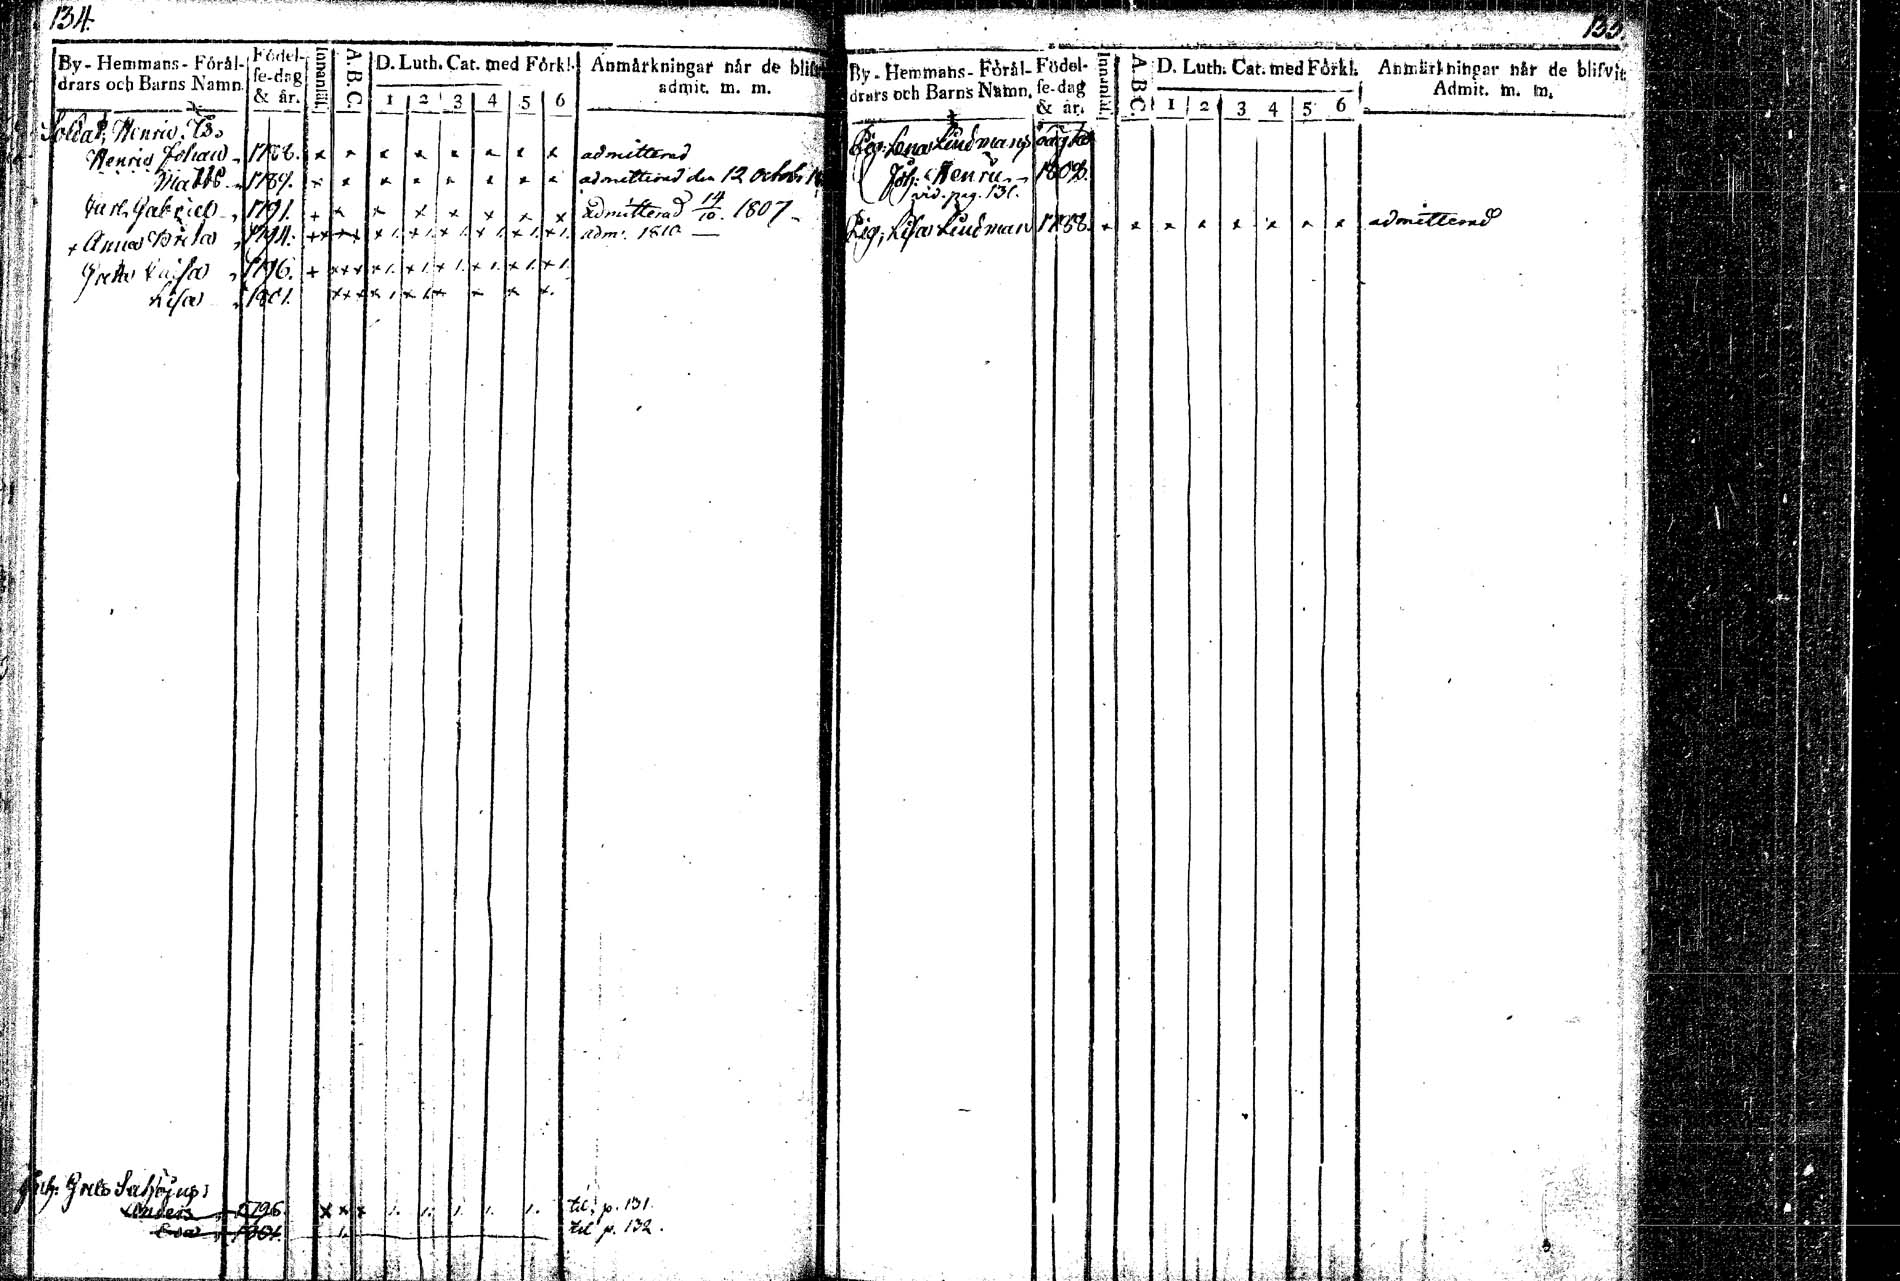 134.
By - Hemmans - Förål-
drars och Barns Namn.
Födel-
se-dag
& år.
Innanläs.
A.B.C.
D. Luth. Cat. med Förkl.
1 2 3 4 5 6
Anmärkningar når de blif
admit. m. m.
Soldat. Henric
Henric Johan 1788. x x x x x x x x admitterad
Matts 1789. x x x x x x x x admitterad den 12 October
Carl Gabriel 1791. + x x x x x x x admitterad 14/10. 1807
+ Anna Brita 1794. x 1. x 1. x 1. x 1. x 1. x 1. adm. 1810
Greta Caisa 1796. + xxx x 1. x 1. x 1. x 1. x 1. x 1.
Lisa 1801. xxx x 1. x 1. x x x x
Greta
Anders 1796. x x x 1. 1. 1. 1. 1. til p. 131.
til p. 132.
135
By - Hemmans - Förål-
drars och Barns Namn.
Födel-
se-dag
& år.
Innanläs.
A.B.C.
D. Luth. Cat. med Förkl.
1 2 3 4 5 6
Anmärkningar når de blifvit
Admit. m. m.
Pig. Lena Lindmans
Joh. Henric
vid. pag. 131.
Pig. Lisa Lindman 1788. x x x x x x x x admitterad